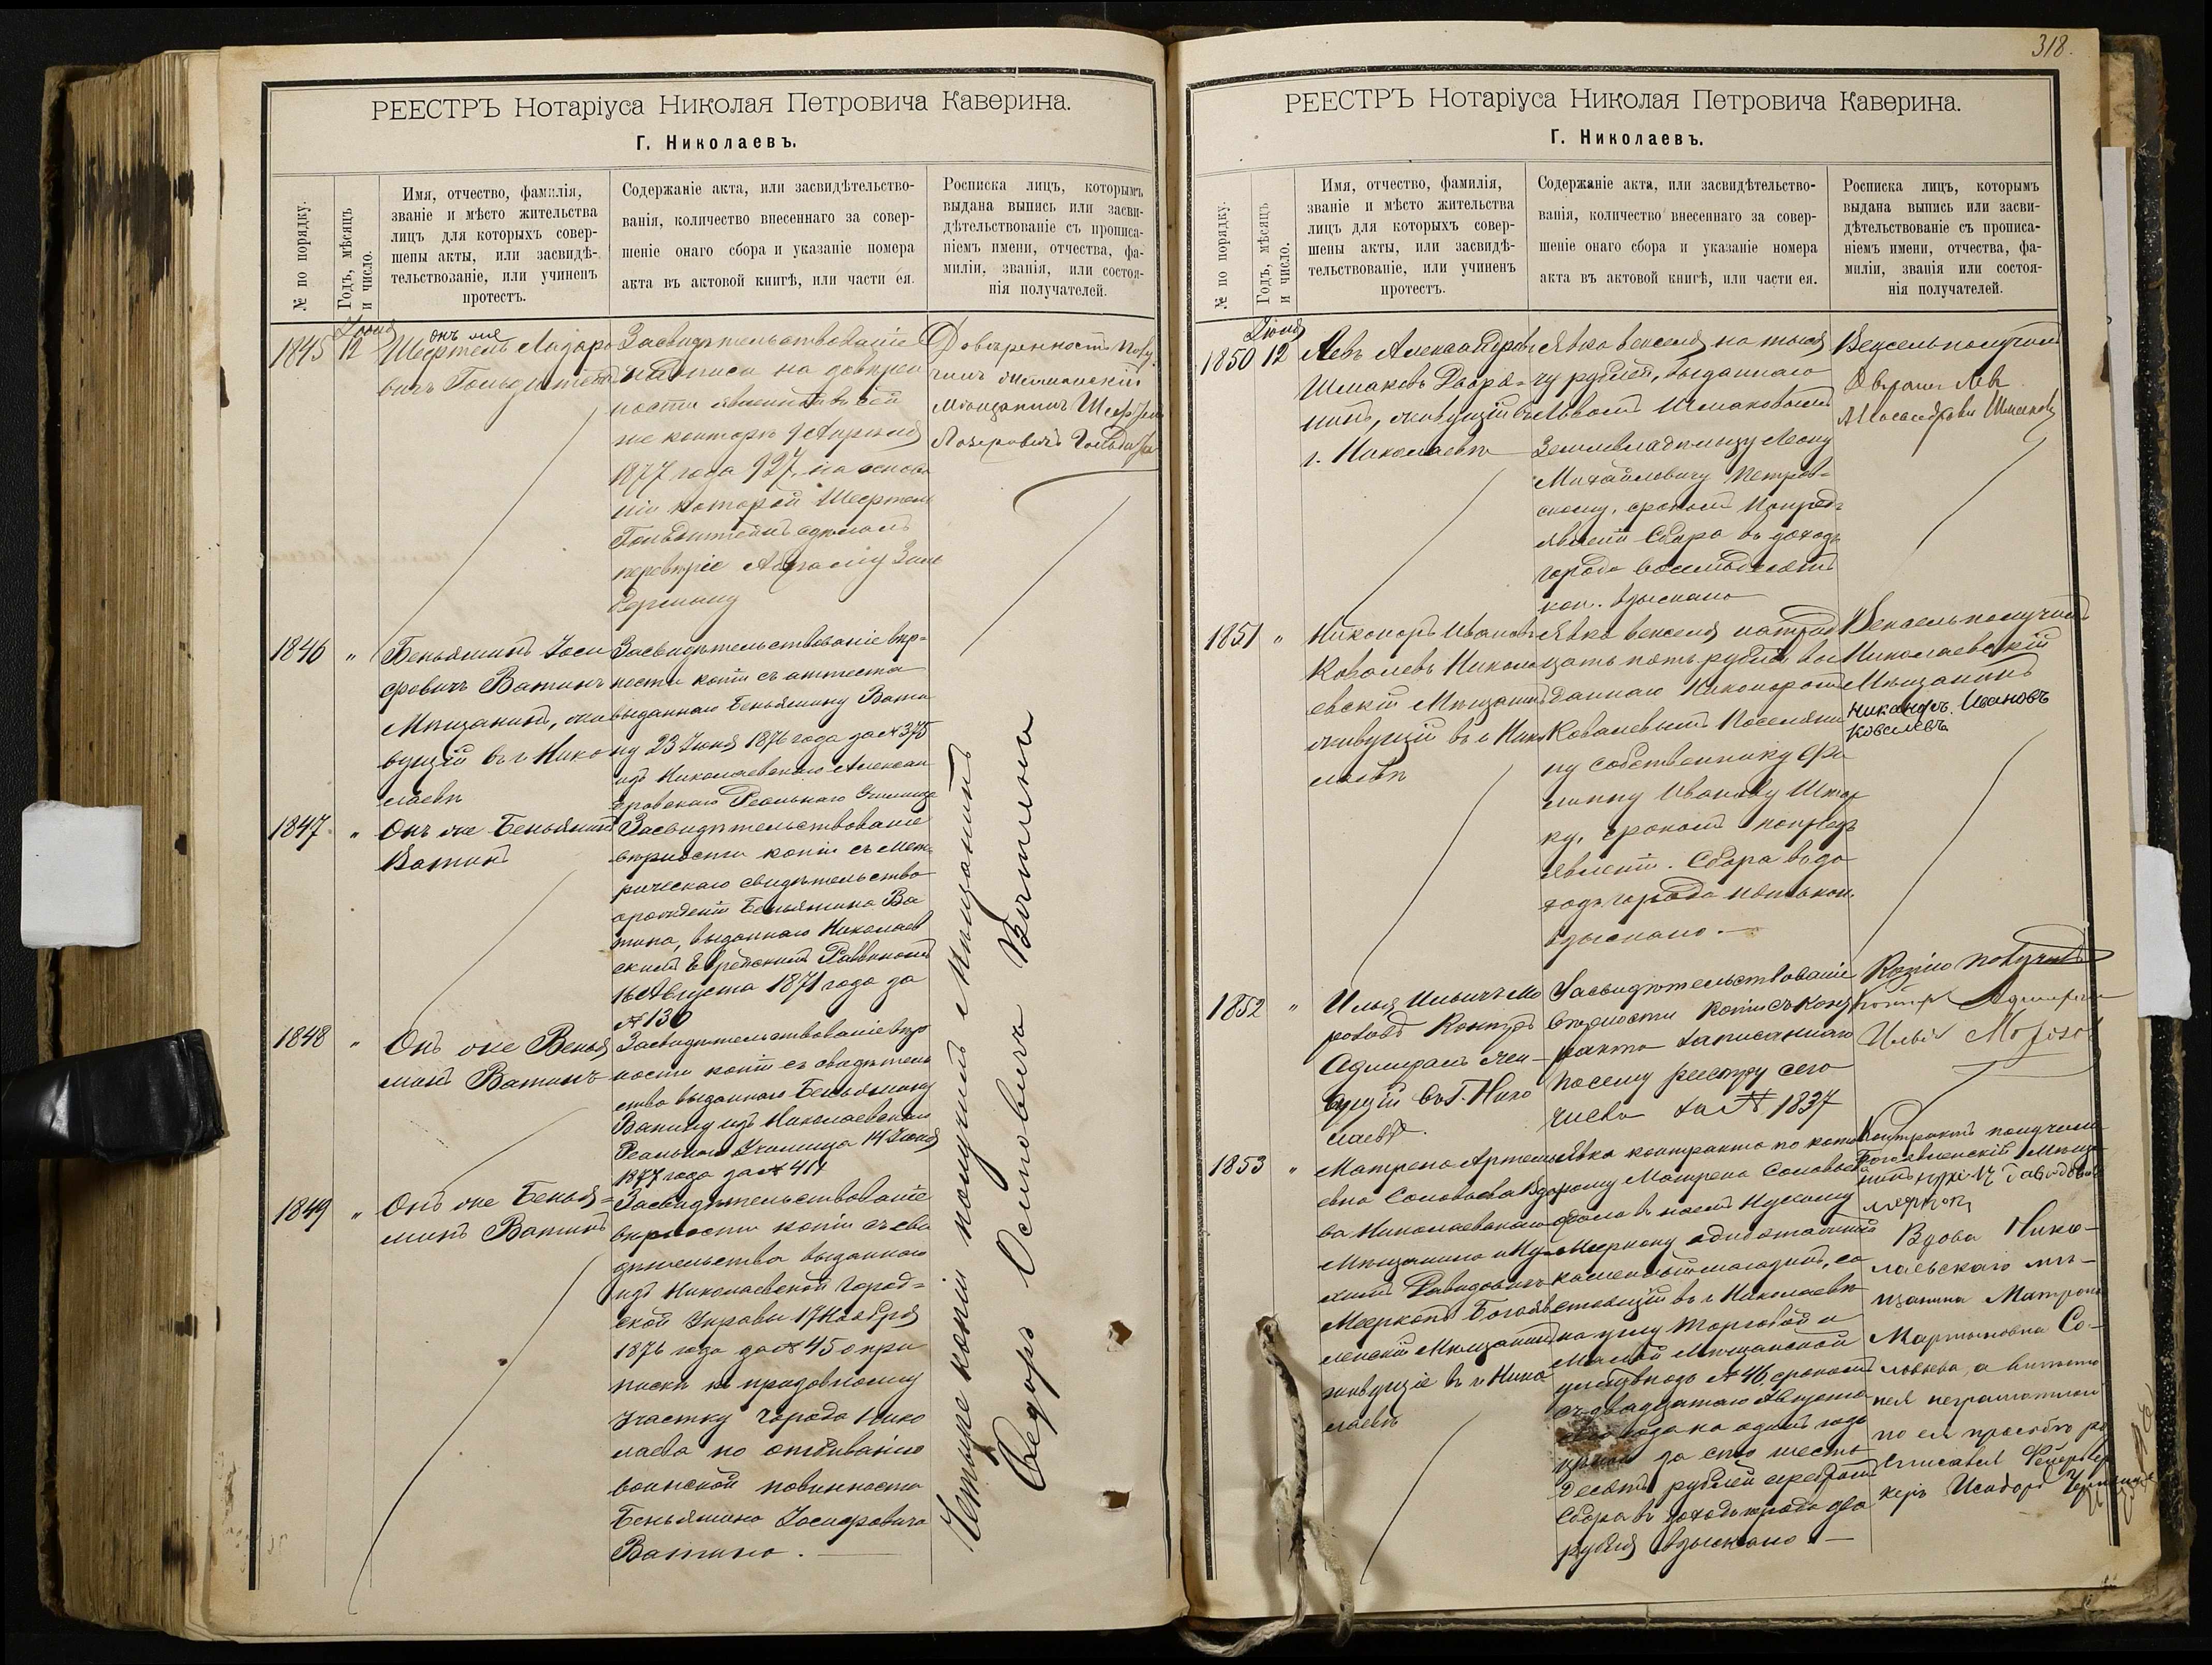 РЕЕСТРЪ Нотаріуса Николая Петровича Каверина.
Г. Николаевъ.
№ по порядку.
Годъ, мѣсяцъ
и число.
Имя, отчество, фамилія,
званіе и мѣсто жительства
лицъ для которыхъ совер-
шены акты, или засвидѣ-
тельствованіе, или учиненъ
протестъ.
Содержаніе акта, или засвидѣтельство-
ванія, количество внесеннаго за совер-
шеніе онаго сбора и указаніе номера
акта въ актовой книгѣ, или части ея.
Росписка лицъ, которымъ
выдана выпись или засви-
дѣтельствованіе съ прописа-
ніемъ имени, отчества, фа-
миліи, званія, или состоя-
нія получателей.
1845
Іюня
12
онъ же
Шефтель Лазаро
вичъ Гольдштейнъ
Засвидѣтельствованіе
надписи на довѣрен
ности явленной въ сей
же конторѣ 9 Апрѣля
1877 года 927, на основа
ніи которой Шефтель
Гольдштейнъ сдѣлалъ
перевѣріе Абраму Зиль
берману
Довѣренность полу
чилъ
мѣщанинъ Шефтель
Лазаровичъ
1846 "
Беньяминъ Іоси
фовичъ Ватинъ
Мѣщанинъ, жи
вущій въ г. Нико
лаевѣ
Засвидѣтельствованіе вѣр-
ности копіи съ аттеста
выданнаго Беньямину Вати
ну 23 Іюня 1876 года за № 375
изъ Николаевскаго Алексан
дровскаго Реальнаго Училища
1847 "
Онъ же Беньяминъ
Ватинъ
Засвидѣтельствованіе
вѣрности копіи съ Мет
рическаго свидѣтельства
о рожденіи Беньямина Ва
тина, выданнаго Николаев
скимъ Еврейскимъ Раввиномъ
16 Августа 1871 года за
№ 130
1848 "
Онъ же Беньа
минъ Ватинъ
Засвидѣтельствованіе вѣр
ности копіи съ свидѣтель
ства выданнаго Беньямину
Ватину изъ Николаевскаго
Реальнаго Училища 14 Іюня
1877 года за № 414
1849 "
Онъ же Беньа-
минъ Ватинъ
Засвидѣтельствованіе
вѣрности копіи съ сви
дѣтельства выданнаго
изъ Николаевской Город-
ской Управы 17 Ноября
1876 года за № 45 о при
пискѣ къ призовному
участку города Нико
лаева по отбыванію
воинской повинности
Беньямина Іосифовича
Ватина.
Четыре копіи получилъ Мѣщанинъ
Федоръ Осиповичъ Ватинъ
318.
РЕЕСТРЪ Нотаріуса Николая Петровича Каверина.
Г. Николаевъ.
№ по порядку.
Годъ, мѣсяцъ
и число.
Имя, отчество, фамилія,
званіе и мѣсто жительства
лицъ для которыхъ совер-
шены акты, или засвидѣ-
тельствованіе, или учиненъ
протестъ.
Содержаніе акта, или засвидѣтельство-
ванія, количество внесеннаго за совер-
шеніе онаго сбора и указаніе номера
акта въ актовой книгѣ, или части ея.
Росписка лицъ, которымъ
выдана выпись или засви-
дѣтельствованіе съ прописа-
ніемъ имени, отчества, фа-
миліи, званія или состоя-
нія получателей.
1850
Іюня
12
Левъ Александров
Шмаковъ Дворя-
нинъ, живущій въ
г. Николаевѣ
Явка векселя на тыся
чу рублей, выданнаго
Львомъ Шмаковымъ
Землевладѣльцу Леону
Михайловичу Петров-
скому, срокомъ по пред-
явленіи Сбора въ доходъ
города восемьдесятъ
коп. взыскано
Вексель получилъ
Дворянинъ Левъ
Александровъ Шмаковъ
1851 "
Никаноръ Ивановъ
Ковалевъ Никола
евскій Мѣщанинъ
живущій въ г. Нико
лаевѣ
Явка векселя на трид
цать пять рублей вы
даннаго Никаноромъ
Ковалевымъ Поселяни
ну собственнику Фи
липпу Иванову Штар
ку, срокомъ по пред
явленіи. Сбора въ до
ходъ города пять коп.
взыскано.—
Вексель получилъ
Николаевскій
Мѣщанинъ
Никаноръ Ивановъ
Ковалевъ
1852 "
Илья Ильичъ Мо
розовъ Контръ
Адмиралъ жи-
вущій въ Г. Нико
лаевѣ.
Засвидѣтельствованіе
вѣрности копіи съ конт
ракта записаннаго
по сему реестру сего
числа за № 1837
Копію получилъ
Контръ Адмиралъ
Илья Морозов
1853 "
Матрена Артемь
евна Соловьева Вдо
ва Николаевскаго
Мѣщанина и Ну-
химъ Давидовичъ
Мееркопъ Богояв
ленскій Мѣщанинъ
живущіе въ г. Нико
лаевѣ
Явка контракта по кото
рому Матрена Соловьева
отдала въ наемъ Нухиму
Мееркопу
каменный магазинъ, со
стоящій въ г. Николаевѣ
на углу Торговой и
Малой Мѣщанской
улицъ подъ № 46, срокомъ
съ двадцатаго Августа
сего года на одинъ годъ
цѣною за сто шесть
десятъ рублей серебромъ
Сбора въ доходъ города два
рубля взыскано.—
Контрактъ получилъ
Богоявленскій мѣща
нинъ Нухимъ Давидовъ
Меркоп
Вдова Нико-
лаевскаго мѣ-
щанина Матрона
Мартыновна Со-
ловьева, а вмѣсто
нея неграмотной
по ея просьбѣ ра
списался Фейервер
керъ Исидоръ